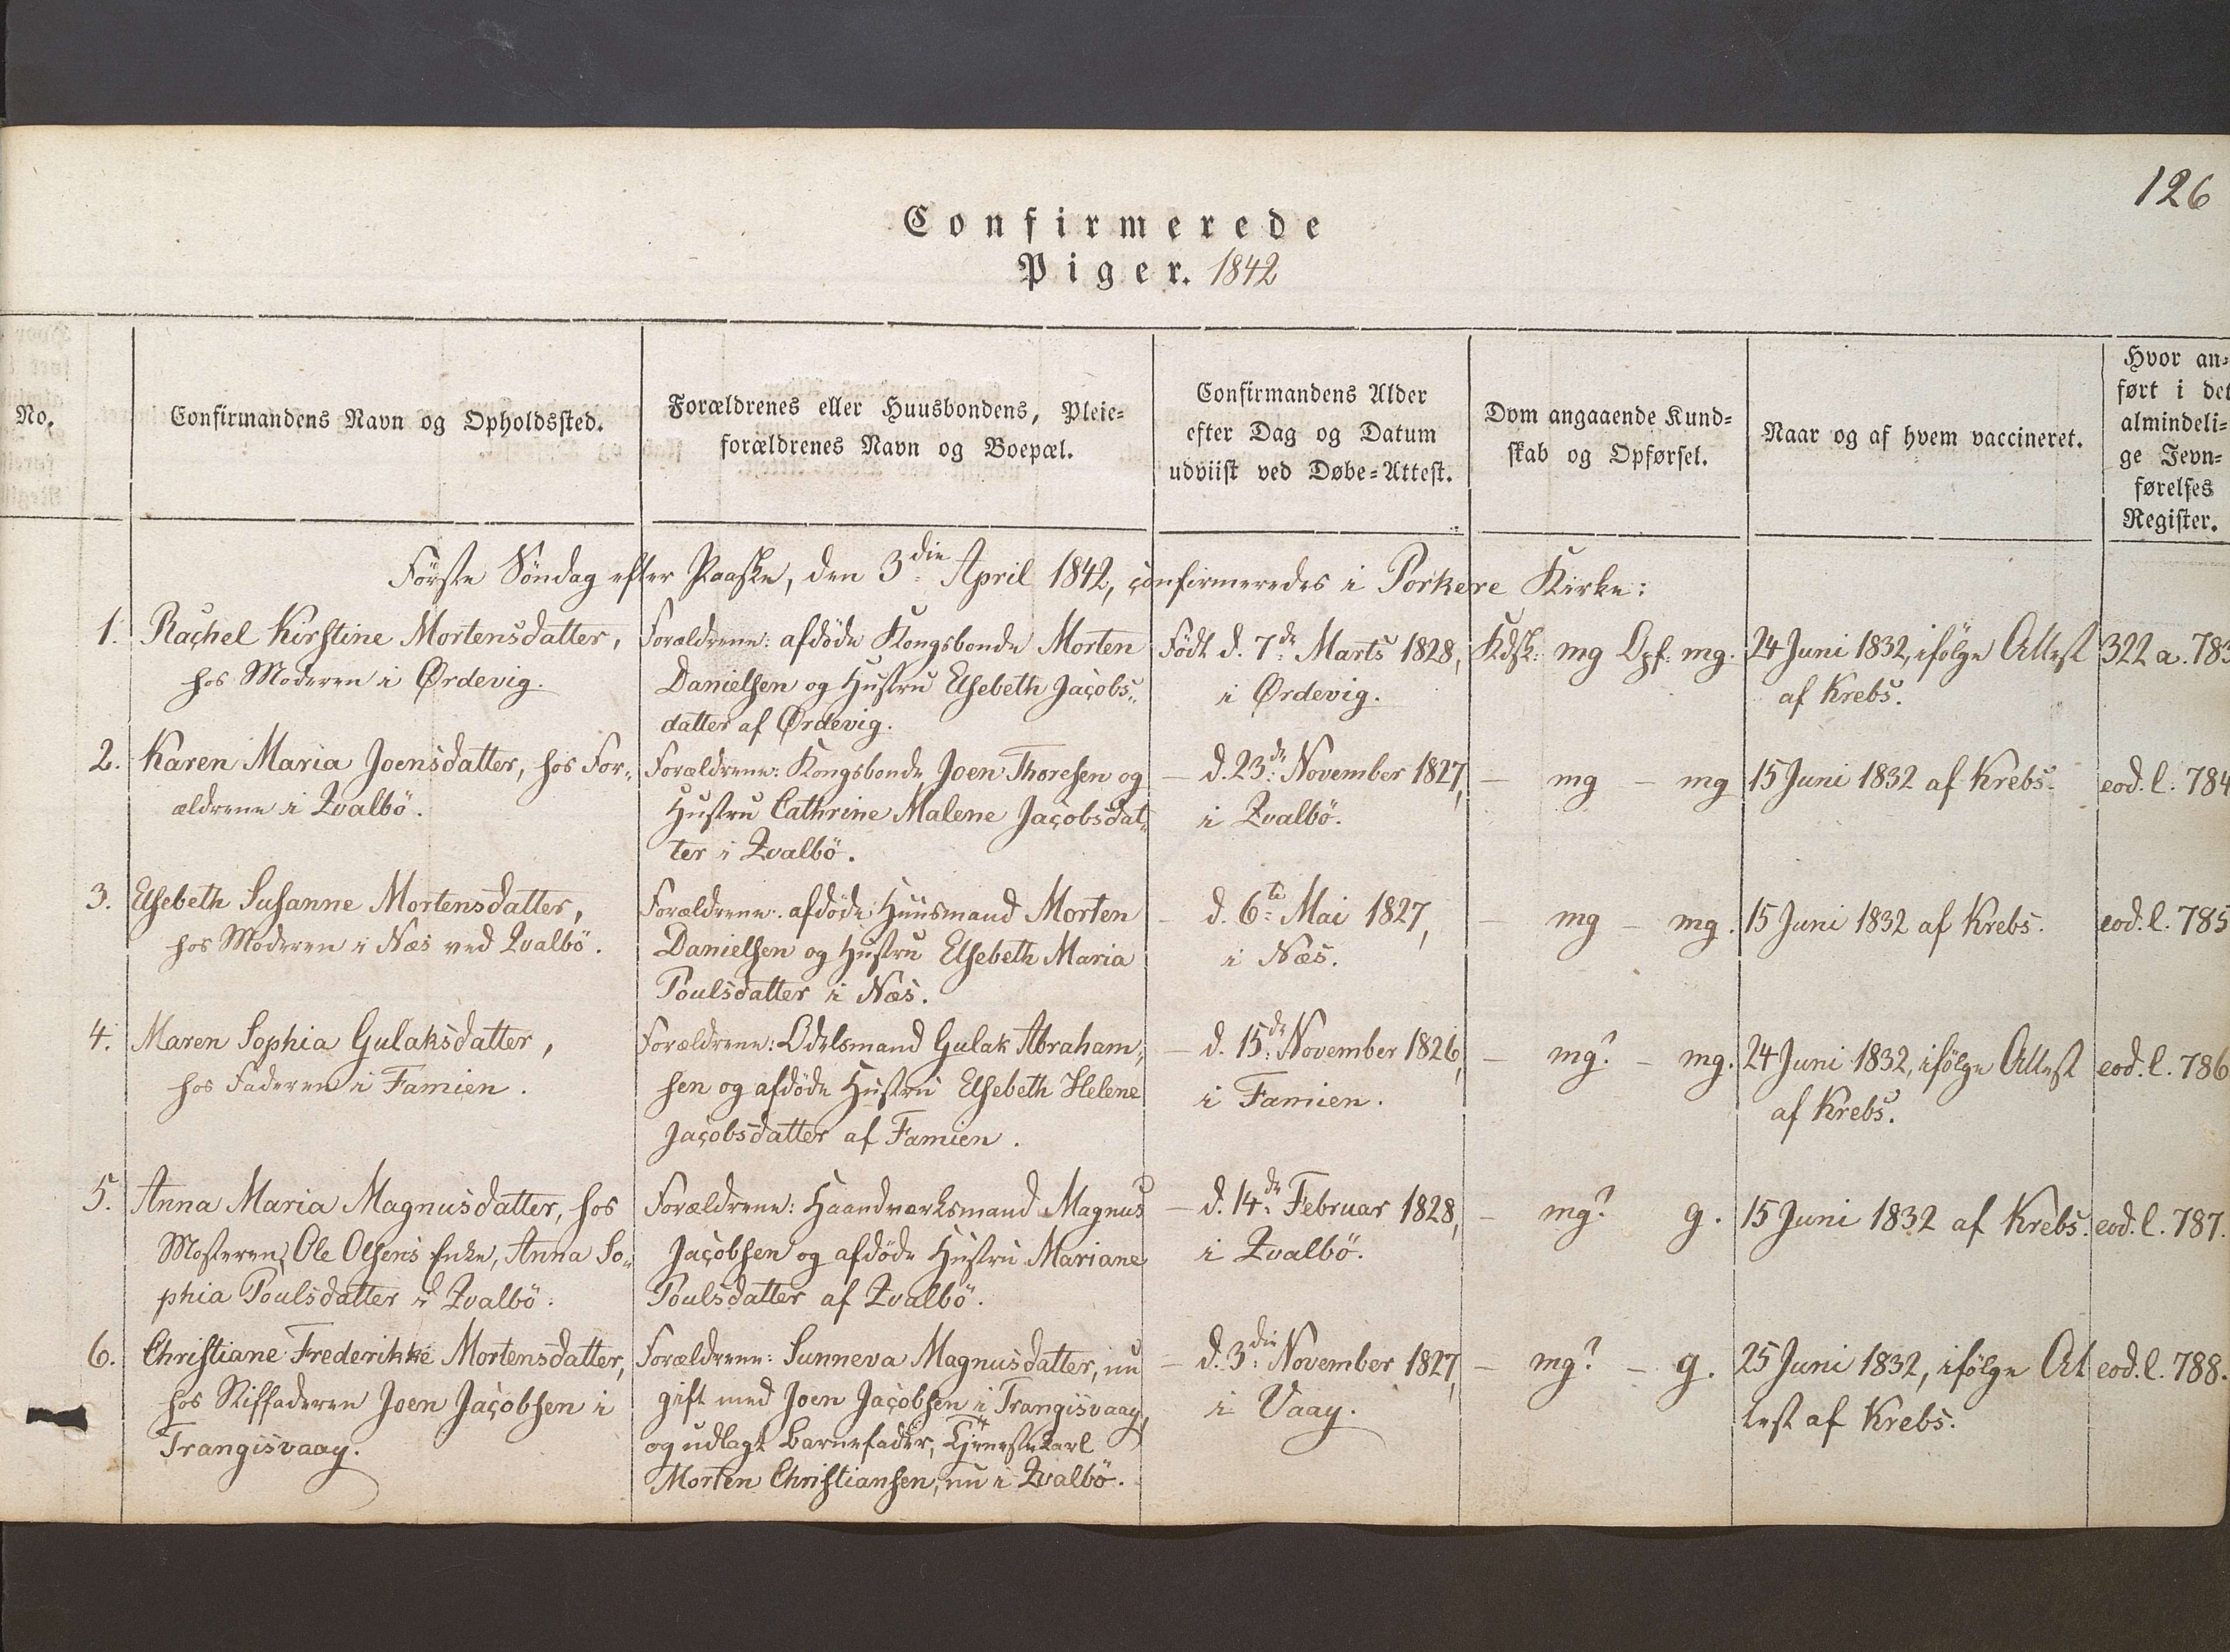 126
Confirmerede
Piger. 1842
No.
Confirmandens Navn og Opholdssted.
Forældrenes eller Huusbondens, Pleie-
forældrenes Navn og Boepæl.
Confirmandens Alder
efter Dag og Datum
udviist ved Døbe-Attest.
Dom angaaende Kund-
skab og Opførsel.
Naar og af hvem vaccineret.
Hvor an-
ført i det
almindeli-
ge Jevn-
førelses
Register.
Förste Söndag efter Paaske, den 3die April 1842, confirmeredes i Porkere Kirke:
1. Rachel Kirstine Mortensdatter,
hos Moderen i Ørdevig.
Forældrene: afdöde Kongsbonde Morten
Danielsen og Hustru Elsebeth Jacobs-
datter af Ørdevig.
Födt d. 7de Marts 1828,
i Ørdevig.
Kdsk: mg Opf: mg.
24 Juni 1832, ifölge Attest
af Krebs.
322 a. 783
2. Karen Maria Joensdatter, hos For-
ældrene i Qvalbö.
Forældrene: Kongsbonde Joen Thoresen og
Hustru Cathrine Malene Jacobsdat-
ter i Qvalbö.
— d. 23de November 1827,
i Qvalbö.
— mg — mg
15 Juni 1832 af Krebs.
eod. l. 784
3. Elsebeth Susanne Mortensdatter,
hos Moderen i Næs ved Qvalbö.
Forældrene: afdöde Huusmand Morten
Danielsen og Hustru Elsebeth Maria
Poulsdatter i Næs.
— d. 6te Mai 1827,
i Næs.
— mg — mg.
15 Juni 1832 af Krebs.
eod. l. 785
4. Maren Sophia Gulaksdatter,
hos Faderen i Famien.
Forældrene: Odelsmand Gulak Abraham-
sen og afdöde Hustru Elsebeth Helene
Jacobsdatter af Famien.
— d. 15de November 1826,
i Famien.
— mg? — mg.
24 Juni 1832, ifölge Attest
af Krebs.
eod. l. 786
5. Anna Maria Magnusdatter, hos
Mosteren, Ole Olsens Enke, Anna So-
phia Poulsdatter i Qvalbö.
Forældrene: Haandværksmand Magnus
Jacobsen og afdöde Hustru Mariane
Poulsdatter af Qvalbö.
— d. 14de Februar 1828,
i Qvalbö.
— mg? g.
15 Juni 1832 af Krebs.
eod. l. 787.
6. Christiane Frederikke Mortensdatter,
hos Stiffaderen Joen Jacobsen i
Trangisvaag.
Forældrene: Sunneva Magnusdatter, nu
gift med Joen Jacobsen i Trangisvaag,
og udlagt Barnefader, Tjenestekarl
Morten Christiansen, nu i Qvalbö.
— d. 3die November 1827,
i Vaag.
— mg? — g.
25 Juni 1832, ifölge At
test af Krebs.
eod. l. 788.